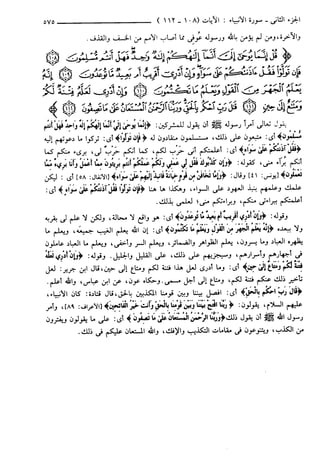 الجزء الثانى - سورة الأنبياء : الآيات (١٠٨ - ١١٢) ٥٧٥
والآخرة، ومن لم يؤمن بالله ورسوله عُوفي مما أصاب الأمم من الخسف والقذف.
قُلْ إِنَّمَا يُوحَىٰ إِلَيَّ أَنَّمَا إِلَٰهُكُمْ إِلَٰهٌ وَاحِدٌ فَهَلْ أَنتُم مُّسْلِمُونَ
فَإِن تَوَلَّوْا فَقُلْ آذَنتُكُمْ عَلَىٰ سَوَاءٍ وَإِنْ أَدْرِي أَقَرِيبٌ أَم بَعِيدٌ مَّا تُوعَدُونَ
إِنَّهُ يَعْلَمُ الْجَهْرَ مِنَ الْقَوْلِ وَيَعْلَمُ مَا تَكْتُمُونَ وَإِنْ أَدْرِي لَعَلَّهُ فِتْنَةٌ لَّكُمْ
وَمَتَاعٌ إِلَىٰ حِينٍ قَالَ رَبِّ احْكُم بِالْحَقِّ وَرَبُّنَا الرَّحْمَٰنُ الْمُسْتَعَانُ عَلَىٰ مَا تَصِفُونَ
يقول تعالى آمراً رسوله ﷺ أن يقول للمشركين: ﴿إنما يوحى إلي أنما إلهكم إله واحد فهل أنتم
مسلمون﴾ أي: متبعون على ذلك، مستسلمون منقادون له ﴿فإن تولوا﴾ أي: تركوا ما دعوتهم إليه
﴿فقل آذنتكم على سواء﴾ أي: أعلمتكم أني حرب لكم، كما أنكم حرب لي، بريء منكم كما
أنتم برآء مني، كقوله: ﴿وإن كذبوك فقل لي عملي ولكم عملكم أنتم بريئون مما أعمل وأنا بريء مما
تعملون﴾ [يونس: ٤١] وقال: ﴿وإما تخافن من قوم خيانة فانبذ إليهم على سواء﴾ [الأنفال: ٥٨] أي: ليكن
علمك وعلمهم بنبذ العهود على السواء، وهكذا ها هنا ﴿فإن تولوا فقل آذنتكم على سواء﴾ أي:
أعلمتكم ببراءتي منكم، وبراءتكم مني؛ لعلمي بذلك.
وقوله: ﴿وإن أدري أقريب أم بعيد ما توعدون﴾ أي: هو واقع لا محالة، ولكن لا علم لي بقربه
ولا ببعده ﴿إنه يعلم الجهر من القول ويعلم ما تكتمون﴾ أي: إن الله يعلم الغيب جميعه، ويعلم ما
يظهره العباد وما يسرون، يعلم الظواهر والضمائر، ويعلم السر وأخفى، ويعلم ما العباد عاملون
في أجهارهم وأسرارهم، وسيجزيهم على ذلك، على القليل والجليل. وقوله: ﴿وإن أدري لعله
فتنة لكم ومتاع إلى حين﴾ أي: وما أدري لعل هذا فتنة لكم ومتاع إلى حين، قال ابن جرير: لعل
تأخير ذلك عنكم فتنة لكم، ومتاع إلى أجل مسمى. وحكاه عون، عن ابن عباس، والله أعلم.
﴿قال رب احكم بالحق﴾ أي: افصل بيننا وبين قومنا المكذبين بالحق، قال قتادة: كان الأنبياء،
عليهم السلام، يقولون: ﴿ربنا افتح بيننا وبين قومنا بالحق وأنت خير الفاتحين﴾ [الأعراف: ٨٩]، وأمر
رسول الله ﷺ أن يقول ذلك ﴿وربنا الرحمن المستعان على ما تصفون﴾ أي: على ما يقولون ويفترون
من الكذب، ويتنوعون في مقامات التكذيب والإفك، والله المستعان عليكم في ذلك.